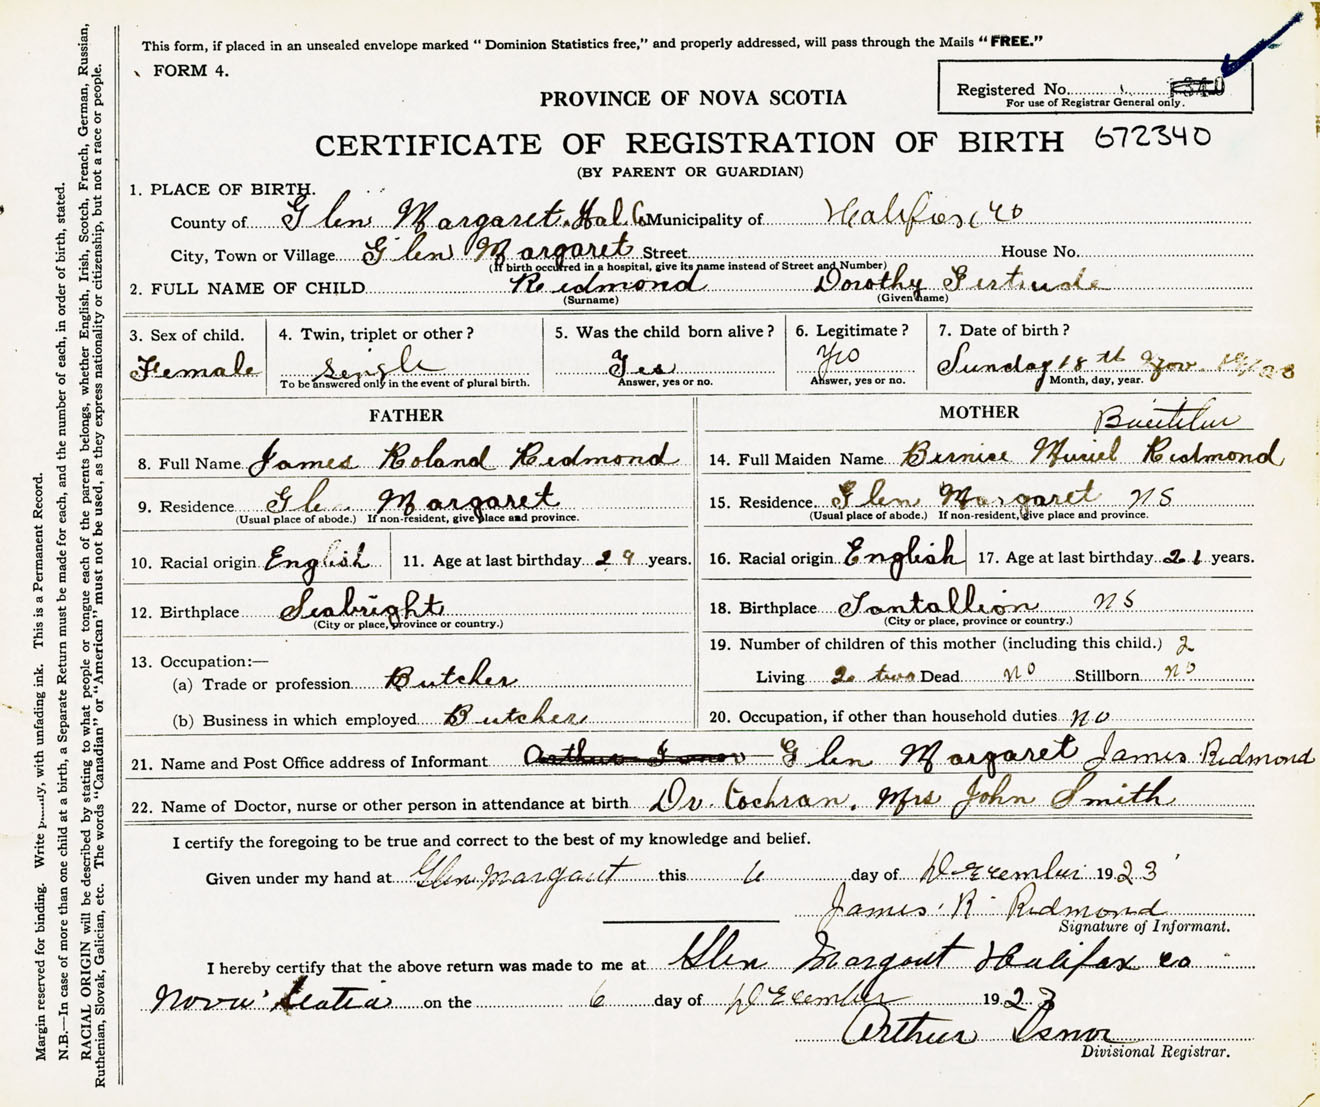 This form, if placed in an unsealed envelope marked " Dominion Statistics free," and properly addressed, will pass through the Mails "FREE."
FORM 4.
Registered No.
For use of Registrar General only.
PROVINCE OF NOVA SCOTIA
CERTIFICATE OF REGISTRATION OF BIRTH 672340
(BY PARENT OR GUARDIAN)
1. PLACE OF BIRTH.
County of Glen Margaret. Hal. Co Municipality of Halifax Co
City, Town or Village Glen Margaret Street House No.
(If birth occurred in a hospital, give its name instead of Street and Number)
2. FULL NAME OF CHILD Redmond Dorothy Gertrude
(Surname) (Given name)
3. Sex of child. 4. Twin, triplet or other? 5. Was the child born alive? 6. Legitimate? 7. Date of birth?
Female Single Yes Yes Sunday 18th Nov.
To be answered only in the event of plural birth. Answer, yes or no. Answer, yes or no. Month, day, year.
FATHER MOTHER
8. Full Name James Roland Redmond 14. Full Maiden Name Bernice Muriel Redmond
9. Residence Glen Margaret 15. Residence Glen Margaret NS
(Usual place of abode.) If non-resident, give place and province. (Usual place of abode.) If non-resident, give place and province.
10. Racial origin English 11. Age at last birthday 29 years. 16. Racial origin English 17. Age at last birthday 21 years.
12. Birthplace Seabright 18. Birthplace Tantallion NS
(City or place, province or country.) (City or place, province or country.)
13. Occupation:— 19. Number of children of this mother (including this child.) 2
(a) Trade or profession Butcher Living 2 two Dead no Stillborn no
(b) Business in which employed Butcher 20. Occupation, if other than household duties no
21. Name and Post Office address of Informant Glen Margaret James Redmond
22. Name of Doctor, nurse or other person in attendance at birth Dr. Cochran. Mrs John Smith
I certify the foregoing to be true and correct to the best of my knowledge and belief.
Given under my hand at Glen Margaret this 6 day of December 1923
James R Redmond
Signature of Informant.
I hereby certify that the above return was made to me at Glen Margaret Halifax co
Nova Scotia on the 6 day of December 1923
Arthur Isnor
Divisional Registrar.
Margin reserved for binding. Write ly, with unfading ink. This is a Permanent Record.
N.B.—In case of more than one child at a birth, a Separate Return must be made for each, and the number of each, in order of birth, stated.
RACIAL ORIGIN will be described by stating to what people or tongue each of the parents belongs, whether English, Irish, Scotch, French, German, Russian,
Ruthenian, Slovak, Galician, etc. The words "Canadian" or "American" must not be used, as they express nationality or citizenship, but not a race or people.